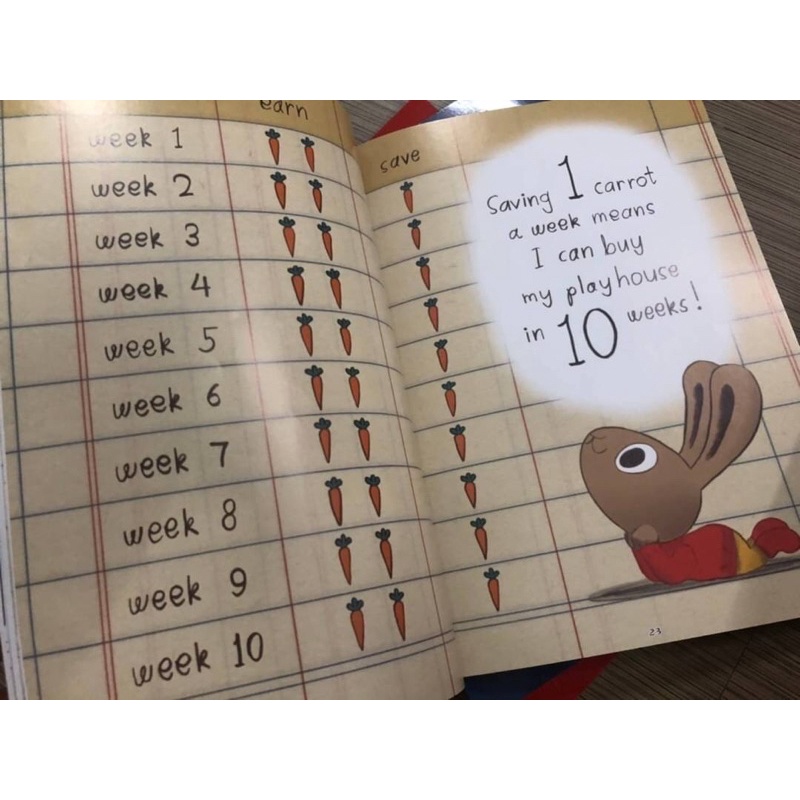 earn
save
week 1
week 2
week 3
week 4
week 5
week 6
week 7
week 8
week 9
week 10
Saving 1 carrot
a week means
I can buy
my playhouse
in 10 weeks!
23